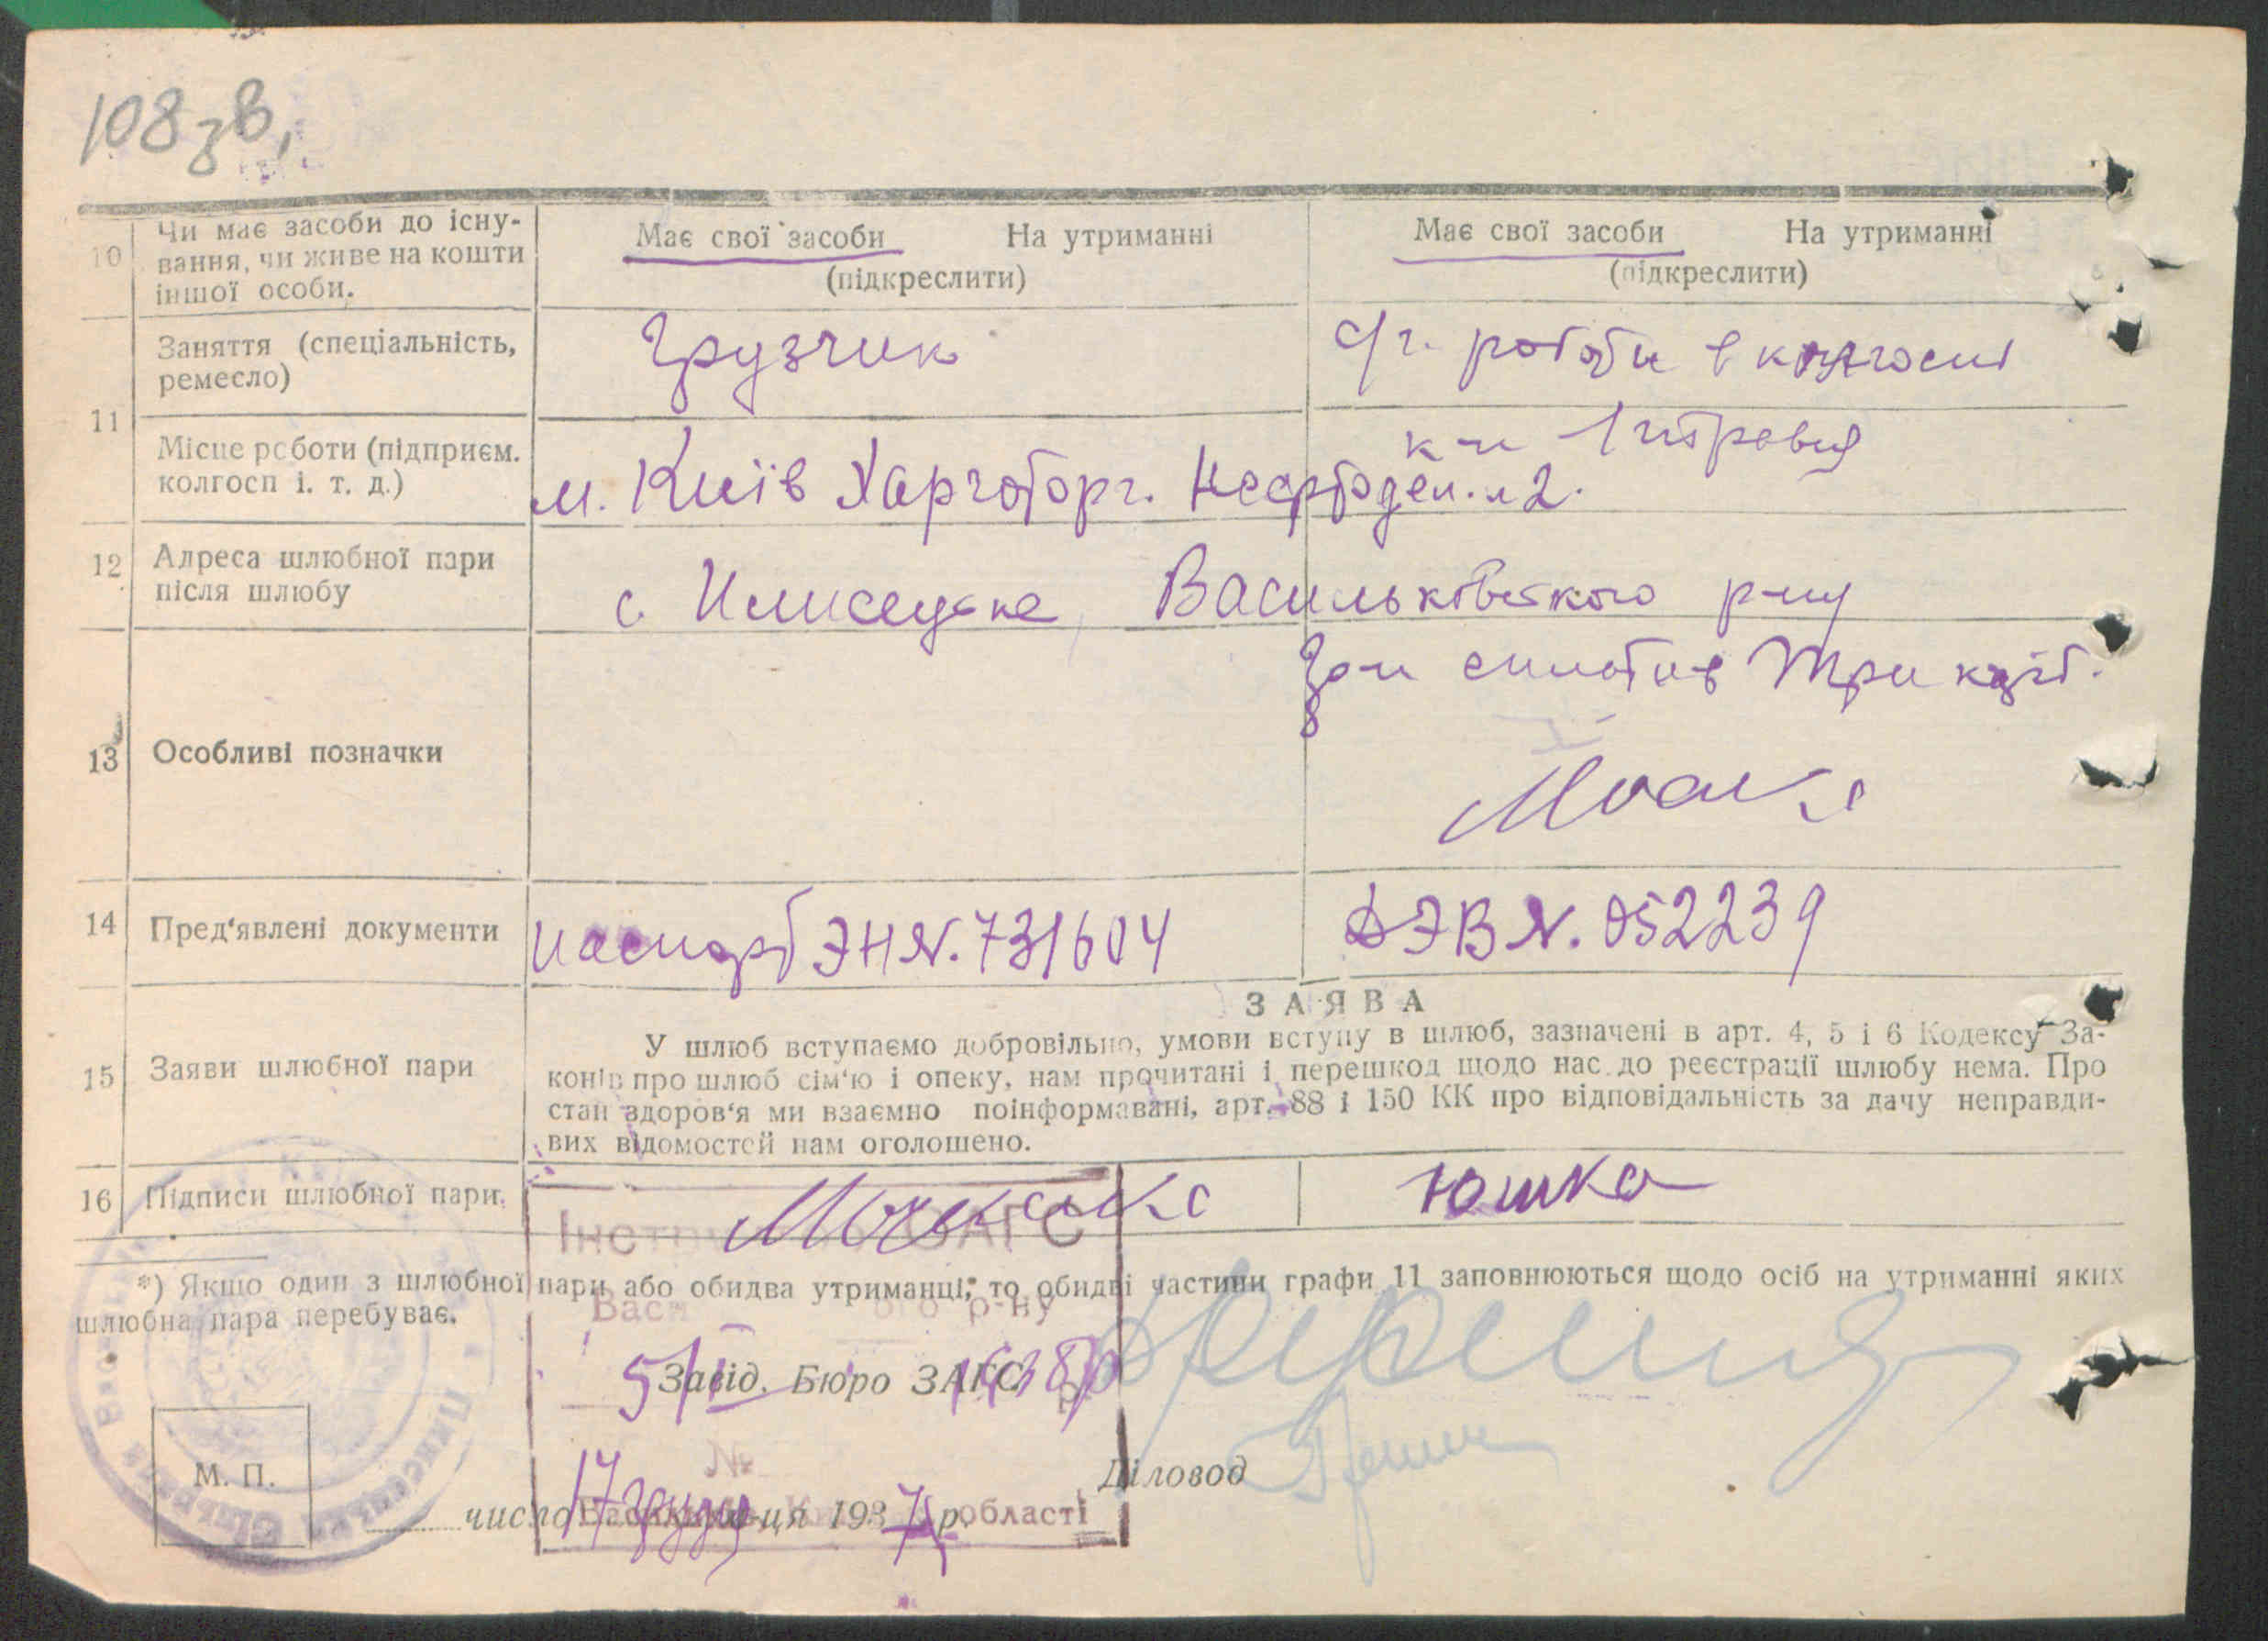 108 зв,
10 Чи має засоби до існу-
вання, чи живе на кошти
іншої особи.
Має свої засоби На утриманні
(підкреслити)
Має свої засоби На утриманні
(підкреслити)
11
Заняття (спеціальність,
ремесло)
Грузчик
с/г. роботи в колгоспі
Місце роботи (підприєм.
колгосп і. т. д.)
м. Київ Харчоторг.
к-п 1 травня
12 Адреса шлюбної пари
після шлюбу
с. Васильківського р-ну
13 Особливі позначки
три карб.
14 Пред'явлені документи
паспорт ЭН N. 731604
ЭВ N. 052239
15 Заяви шлюбної пари
ЗАЯВА
У шлюб вступаємо добровільно, умови вступу в шлюб, зазначені в арт. 4, 5 і 6 Кодексу За-
конів про шлюб сім'ю і опеку, нам прочитані і перешкод щодо нас до реєстрації шлюбу нема. Про
стан здоров'я ми взаємно поінформавані, арт. 88 і 150 КК про відповідальність за дачу неправди-
вих відомостей нам оголошено.
16 Підписи шлюбної пари.
Юшка
ЗАГС
*) Якщо один з шлюбної пари або обидва утриманці, то обидві частини графи 11 заповнюються щодо осіб на утриманні яких
шлюбна пара перебуває.
р-ну
Завід. Бюро ЗАГС
№
М. П.
Діловод
число 17 грудня м-ця 1937 р.
області